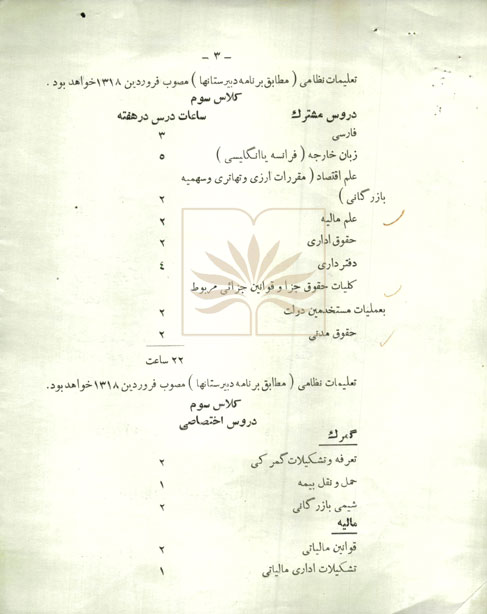 - ۳ -
تعلیمات نظامی ( مطابق برنامه دبیرستانها ) مصوب فروردین ۱۳۱۸ خواهد بود .
کلاس سوم
دروس مشترك ساعات درس در هفته
فارسی ۳
زبان خارجه ( فرانسه یا انگلیسی ) ٥
علم اقتصاد ( مقررات ارزی و تهاتری و سهمیه
بازرگانی ) ۲
علم مالیه ۲
حقوق اداری ۲
دفترداری ٤
کلیات حقوق جزا و قوانین جزائی مربوط
بعملیات مستخدمین دولت ۲
حقوق مدنی ۲
۲۲ ساعت
تعلیمات نظامی ( مطابق برنامه دبیرستانها ) مصوب فروردین ۱۳۱۸ خواهد بود.
کلاس سوم
دروس اختصاصی
گمرك
تعرفه و تشکیلات گمرکی ۲
حمل و نقل بیمه ۱
شیمی بازرگانی ۲
مالیه
قوانین مالیاتی ۲
تشکیلات اداری مالیاتی ۱